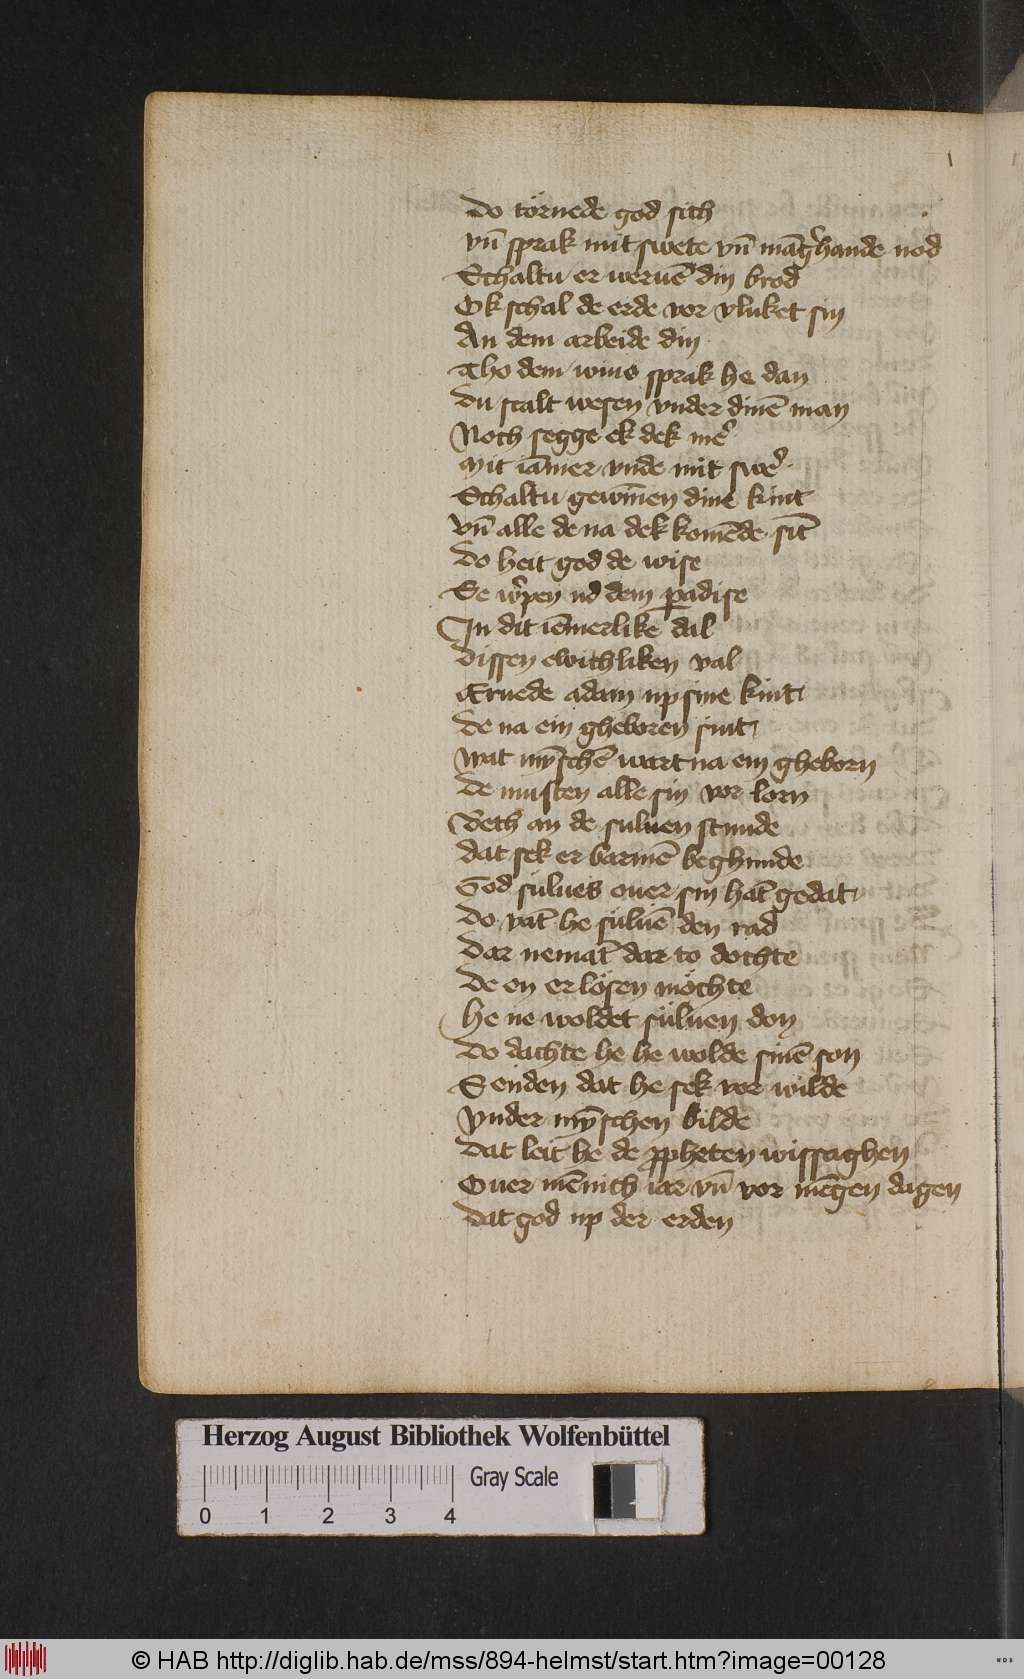 Do törnede god sich
vn̄ sprak mit swete vn̄ māgh̓ande nod
Schaltu er weruē din brod
Ok schal de erde vor vluket sin
An dem arbeide din
Tho dem wiue sprak he dan
Du scalt wesen vnder dinē man
Noch segge ek dek me̓
Mit iāmer vnde mit swe̓
Schaltu gewīnen dine kint
Vn̄ alle de na dek komēde sīt
Do heit god de wise
Se w̓pen ud dem ꝑadise
In dit iēmerlikē dal
Dissen ewichliken val
Eruede adam up sine kint
De na em gheboren sint
Wat mȳschē wart na em gheborn
De musten alle sin vor lorn
Beth an de suluen stunde
Dat sek er barmē beghunde
God sulues ouer sin hātgedat
Do vāt he süluē den rad
Dar nemāt dar to dochte
De en er lösen möchte
He ne woldet süluen don
Do dachte he he wolde sinē son
Senden dat he sek vor wilde
Vnder mȳschen bilde
Dat leit he de ꝓpheten wissaghen
Ouer mēnich iar vn̄ vor mēgen dagen
Dat god up der erden
Herzog August Bibliothek Wolfenbüttel
Gray Scale
0 1 2 3 4
© HAB http://diglib.hab.de/mss/894-helmst/start.htm?image=00128